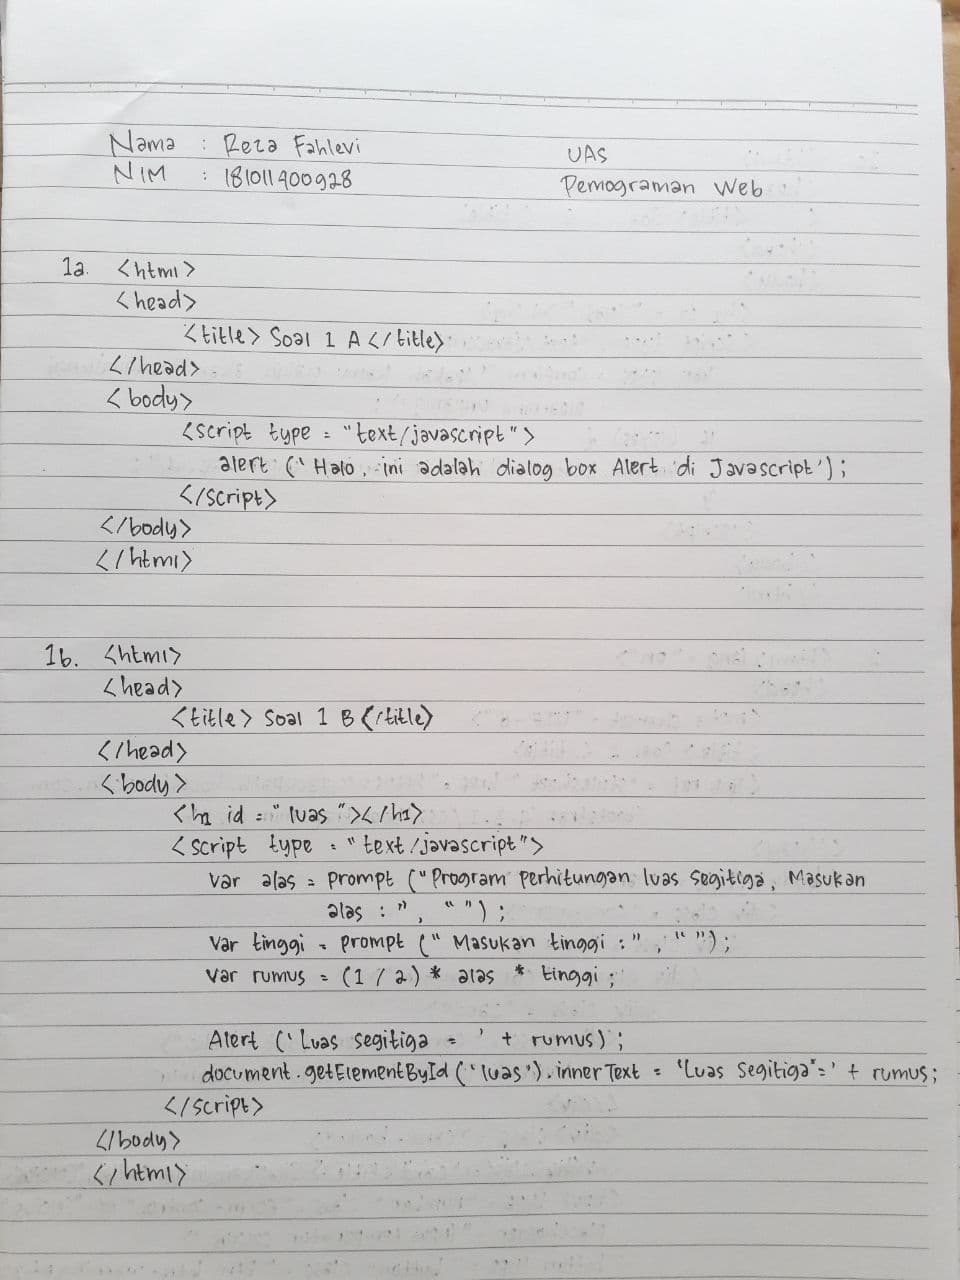 Nama : Reza Fahlevi
NIM : 181011400928
UAS
Pemograman Web
1a. <html>
<head>
<title> Soal 1 A </title>
</head>
<body>
<script type = "text/javascript">
alert ('Halo, ini adalah dialog box Alert di Javascript');
</script>
</body>
</html>
1b. <html>
<head>
<title> Soal 1 B </title>
</head>
<body>
<h1 id = "luas"></h1>
<script type = "text/javascript">
Var alas = prompt ("Program perhitungan luas segitiga, Masukan
alas : ", " ");
Var tinggi = prompt (" Masukan tinggi : ", " ");
Var rumus = (1 / 2) * alas * tinggi ;
Alert ('Luas segitiga = ' + rumus);
document.getElementById ('luas').innerText = 'Luas segitiga"=' + rumus;
</script>
</body>
</html>